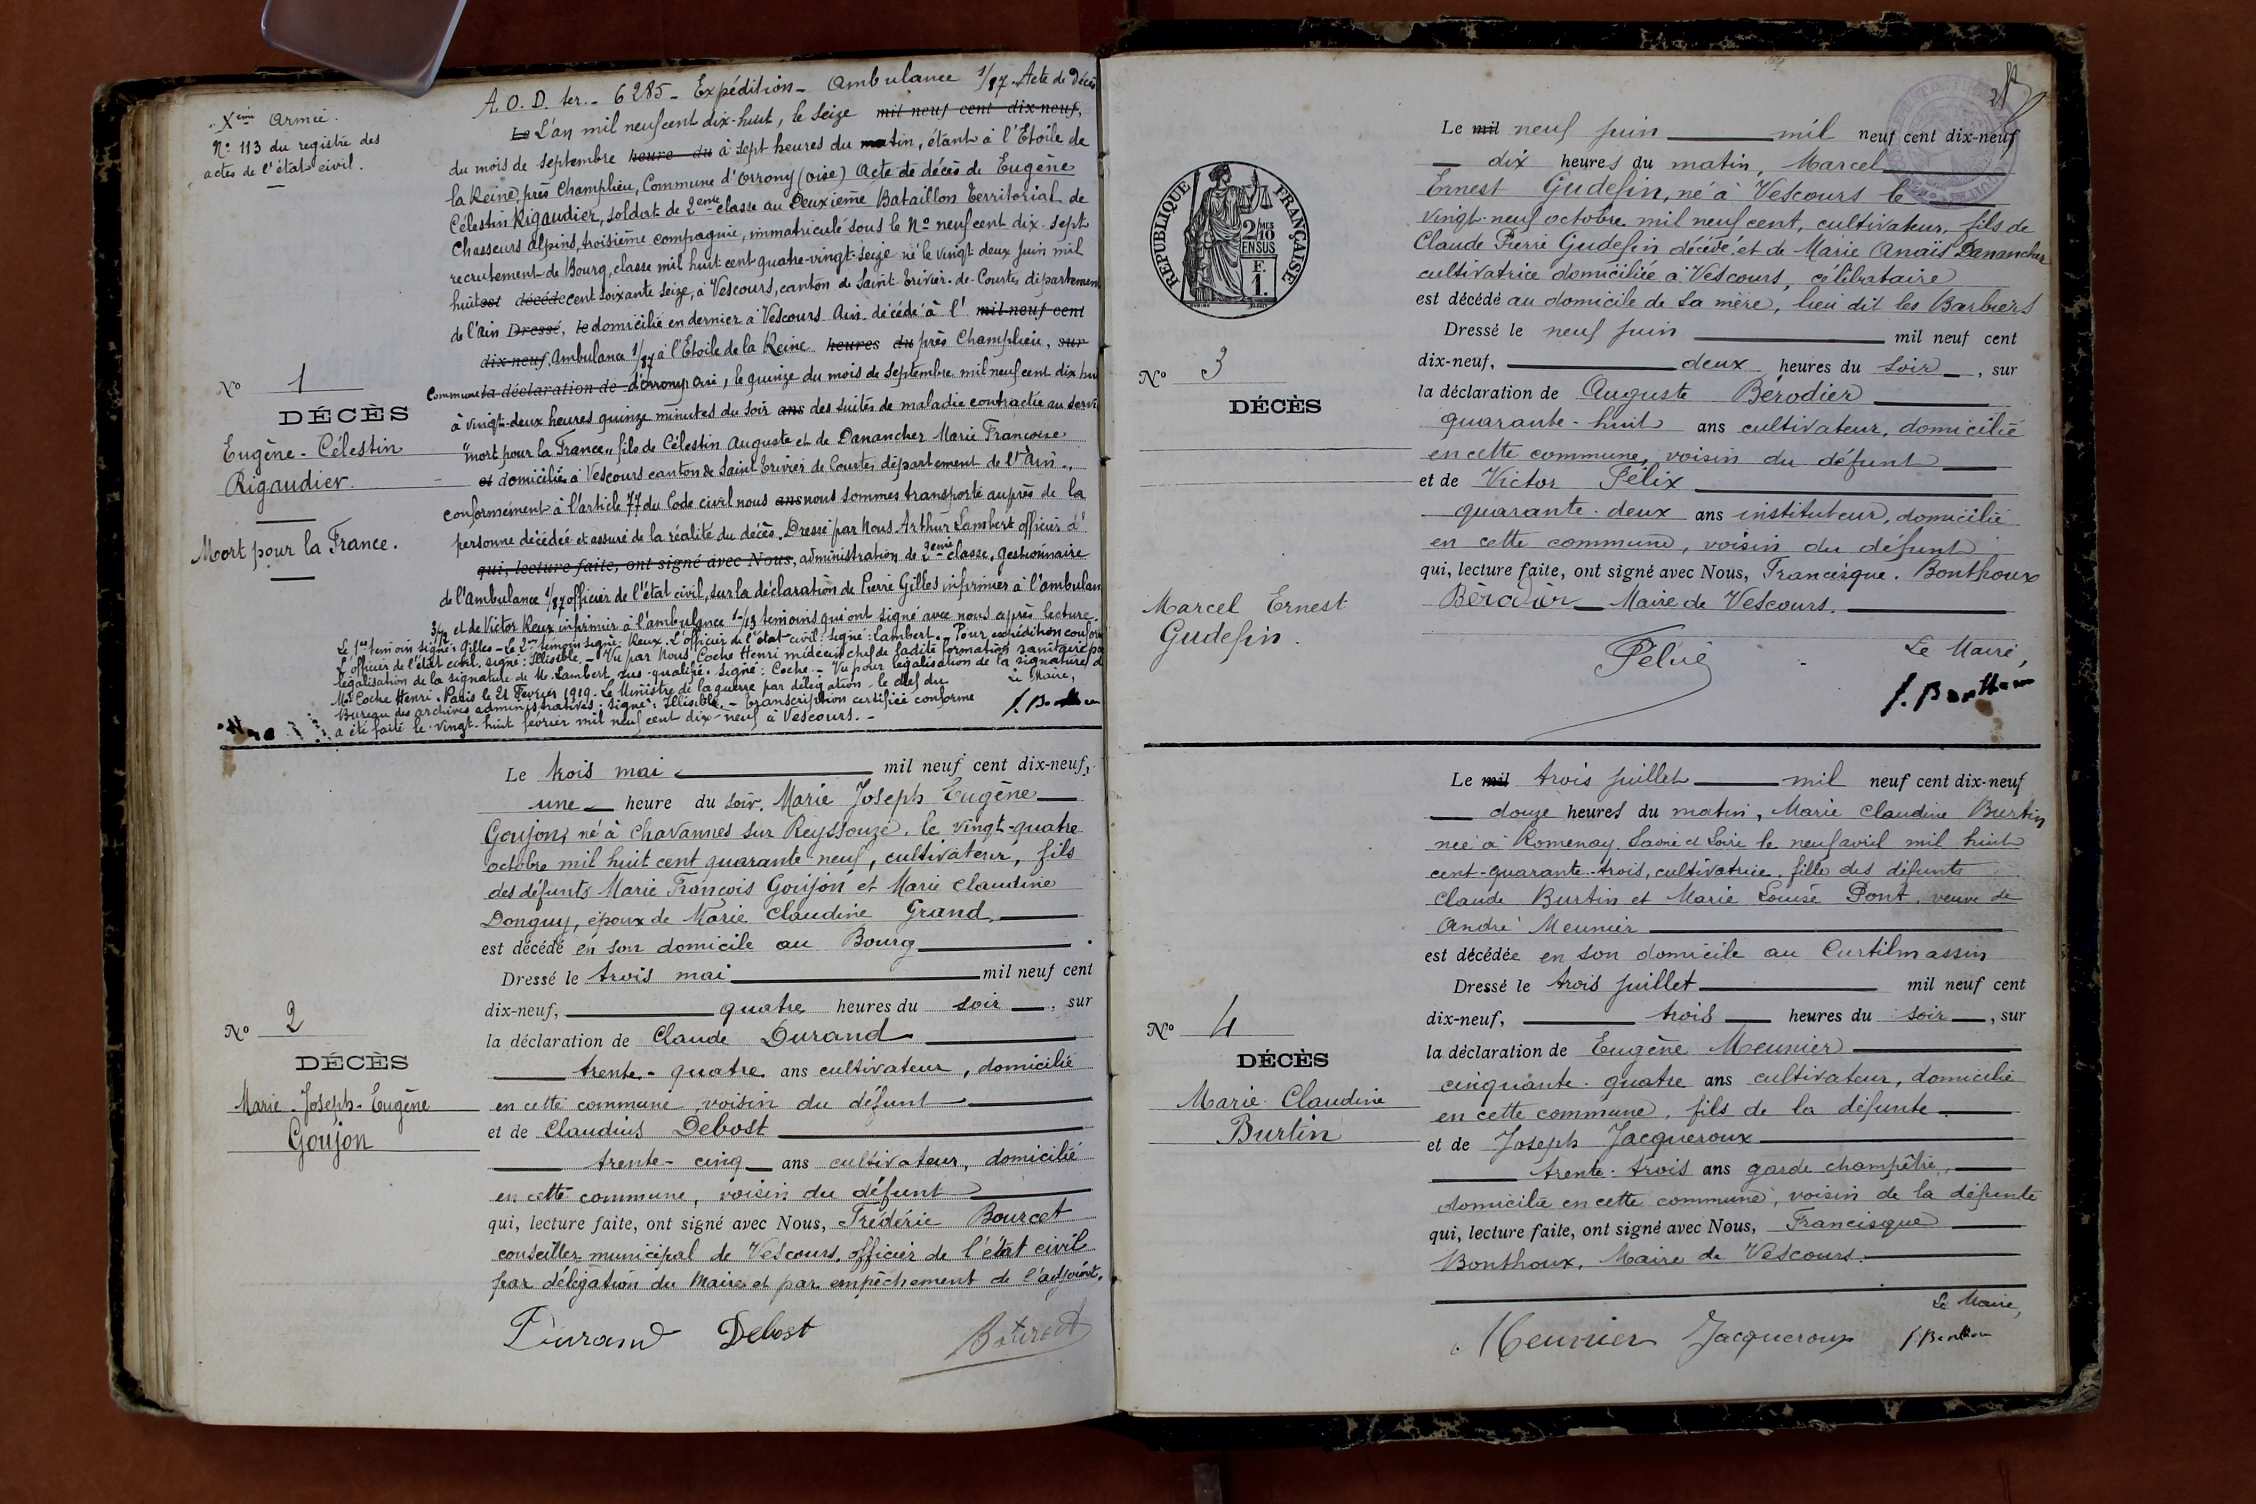 Xème Armée.
No 113 du registre des
actes de l'état civil.
A.O.D. ter. - 6285 - Expédition - Ambulance 1/87. Acte de Décès
Le L'an mil neuf cent dix-huit, le seize mil neuf cent dix-neuf,
du mois de septembre heure du à sept heures du matin, étant à l'Etoile de
la Reine, près Champlieu, Commune d'Orrony (Oise) Acte de décès de Eugène
Célestin Rigaudier, soldat de 2eme classe au Deuxième Bataillon territorial de
Chasseurs alpins, troisième compagnie, immatriculé sous le No neuf cent dix-sept
recrutement de Bourg, classe mil huit cent quatre-vingt-seize né le vingt deux juin mil
huit est décédé cent soixante seize, à Vescours, canton de Saint-Trivier-de-Courtes département
de l'Ain Dressé, le domicilié en dernier à Vescours Ain décédé à l' mil neuf cent
dix-neuf, Ambulance 1/87 à l'Etoile de la Reine heures du près Champlieu, sur
commune la déclaration de d'Orrony Oise, le quinze du mois de septembre mil neuf cent dix huit
à vingt-deux heures quinze minutes du soir ans des suites de maladie contractée au servi
"mort pour la France" fils de Célestin Auguste et de Danancher Marie Françoise
et domiciliés à Vescours canton de Saint Trivier de Courtes département de l'Ain.,
conformément à l'article 77 du Code civil nous ans nous sommes transporté auprès de la
personne décédée et assuré de la réalité du décès. Dressé par Nous Arthur Lambert officier d'
qui, lecture faite, ont signé avec Nous, administration de 2eme classe, gestionnaire
de l'ambulance 1/87 officier de l'état civil, sur la déclaration de Pierre Gilles infirmier à l'ambulan
3/13 et de Victor Reux infirmier à l'ambulance 1-/13 témoins qui ont signé avec nous après lecture.
Le 1er témoin signé: Gilles - Le 2me témoin signé: Reux. L'officier de l'état civil: signé: Lambert. - Pour expédition confor
L'officier de l'état civil, signé: Illisible. - Vu par Nous Coche Henri médecin chef de ladite formation sanitaire po
légalisation de la signature de M. Lambert sus-qualifié. Signé: Coche - Vu pour légalisation de la signature d
Mr Coche Henri. Paris le 21 Février 1919. Le Ministre de la guerre par délégation le chef du
Bureau des archives administratives: signé: Illisible. - transcription certifiée conforme
a été faite le vingt-huit février mil neuf cent dix-neuf à Vescours. -
Le Maire,
f. Bonthoux
No 1
DÉCÈS
Eugène-Célestin
Rigaudier.
Mort pour la France.
Le trois mai mil neuf cent dix-neuf,
une heure du soir, Marie Joseph Eugène
Goujon, né à Chavannes sur Reyssouze, le vingt-quatre
octobre mil huit cent quarante neuf, cultivateur, fils
des défunts Marie François Goujon et Marie Claudine
Donguy, époux de Marie Claudine Grand,
est décédé en son domicile au Bourg
Dressé le trois mai mil neuf cent
dix-neuf, quatre heures du soir, sur
la déclaration de Claude Durand
trente-quatre ans cultivateur, domicilié
en cette commune, voisin du défunt
et de Claudius Debost
trente-cinq ans cultivateur, domicilié
en cette commune, voisin du défunt
qui, lecture faite, ont signé avec Nous, Frédéric Bourcet
conseiller municipal de Vescours, officier de l'état civil
par délégation du Maire et par empêchement de l'adjoint.
Durand Debost Bourcet
No 2
DÉCÈS
Marie-Joseph-Eugène
Goujon
RÉPUBLIQUE FRANÇAISE
2/10 MES
EN SUS
F.
1.
Le mil neuf juin mil neuf cent dix-neuf
dix heures du matin, Marcel
Ernest Gudefin, né à Vescours le
vingt-neuf octobre mil neuf cent, cultivateur, fils de
Claude Pierre Gudefin décédé et de Marie Anaïs Danancher
cultivatrice domiciliée à Vescours, célibataire
est décédé au domicile de sa mère, lieu dit les Barbiers
Dressé le neuf juin mil neuf cent
dix-neuf, deux heures du soir, sur
la déclaration de Auguste Bérodier
quarante-huit ans cultivateur, domicilié
en cette commune, voisin du défunt
et de Victor Félix
quarante-deux ans instituteur, domicilié
en cette commune, voisin du défunt
qui, lecture faite, ont signé avec Nous, Francisque Bonthoux
Bérodier Maire de Vescours.
Félix
Le Maire,
f. Bonthoux
No 3
DÉCÈS
Marcel Ernest
Gudefin.
Le mil trois juillet mil neuf cent dix-neuf
douze heures du matin, Marie Claudine Burtin
née à Romenay Saône et Loire le neuf avril mil huit
cent-quarante-trois, cultivatrice, fille des défunts
Claude Burtin et Marie Louise Pont, veuve de
André Meunier
est décédée en son domicile au Curtilmassin
Dressé le trois juillet mil neuf cent
dix-neuf, trois heures du soir, sur
la déclaration de Eugène Meunier
cinquante-quatre ans cultivateur, domicilié
en cette commune, fils de la défunte
et de Joseph Jacqueroux
trente-trois ans garde champêtre,
domicilié en cette commune, voisin de la défunte
qui, lecture faite, ont signé avec Nous, Francisque
Bonthoux, Maire de Vescours.
Le Maire,
Meunier Jacqueroux f. Bonthoux
No 4
DÉCÈS
Marie-Claudine
Burtin